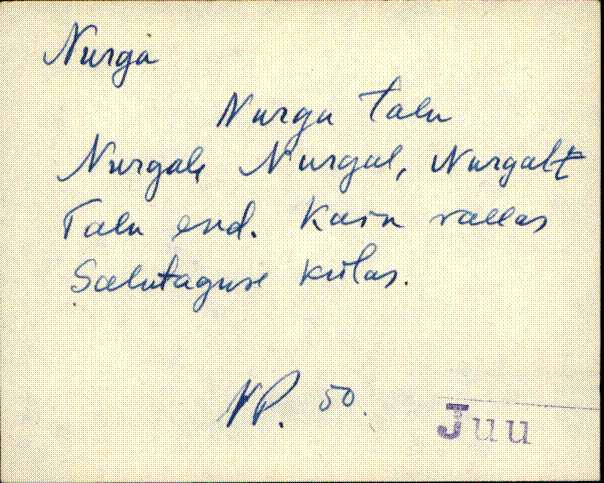 Nurga
Nurga talu
Nurgale Nurgal, Nurgalt
Talu end. Kaiu vallas
Salutaguse külas.
NP. 50.
Juu